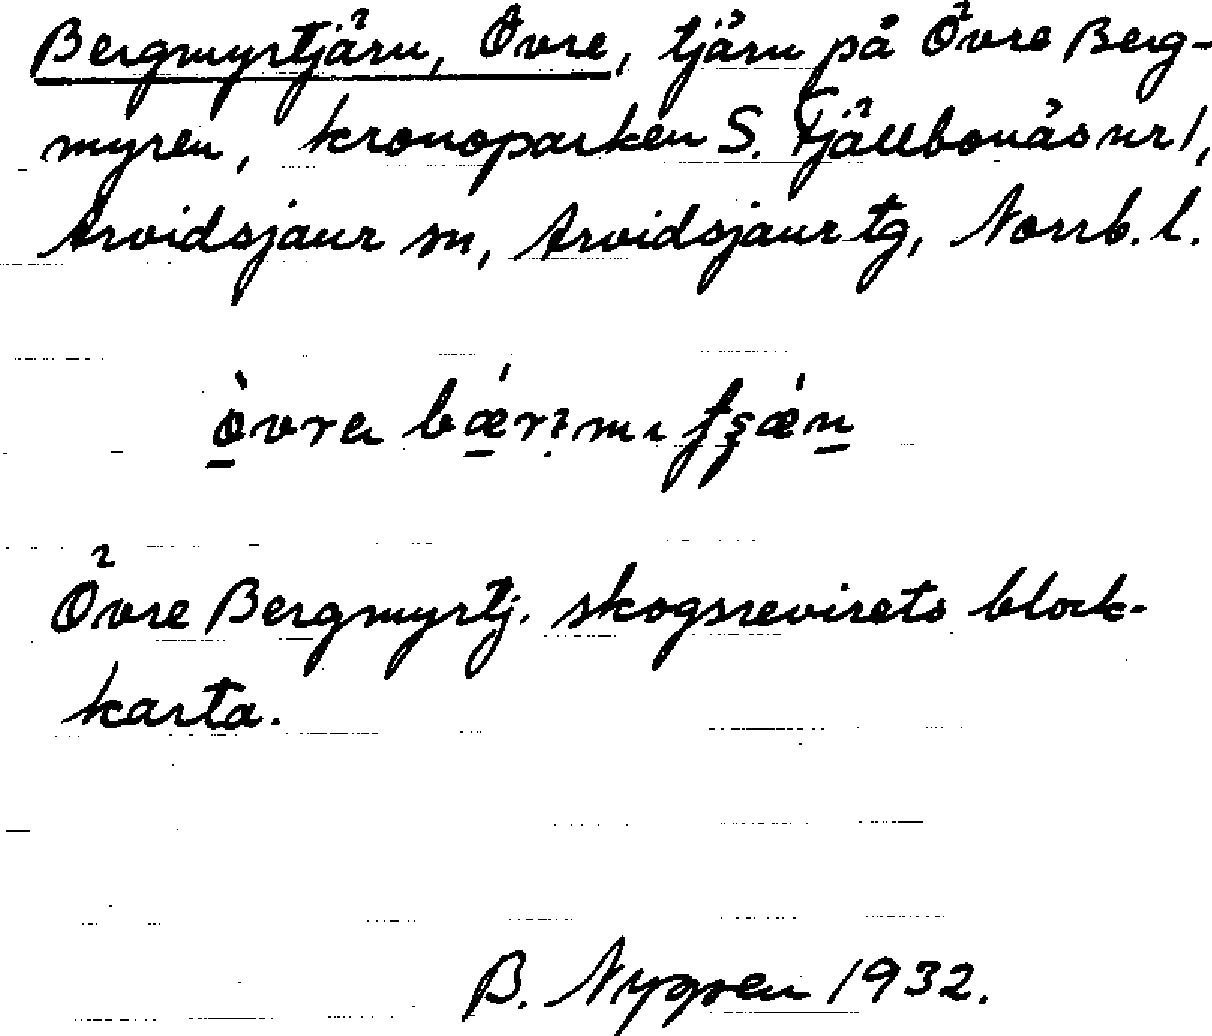 Bergmyrtjärn, Övre, tjärn på Övre Berg-
myren, kronoparken S. Fjällbonäs nr 1,
Arvidsjaur sn, Arvidsjaur tg, Norrb. l.
Övre Bergmyrtj. skogsrevirets block-
karta.
B. Nygren 1932.